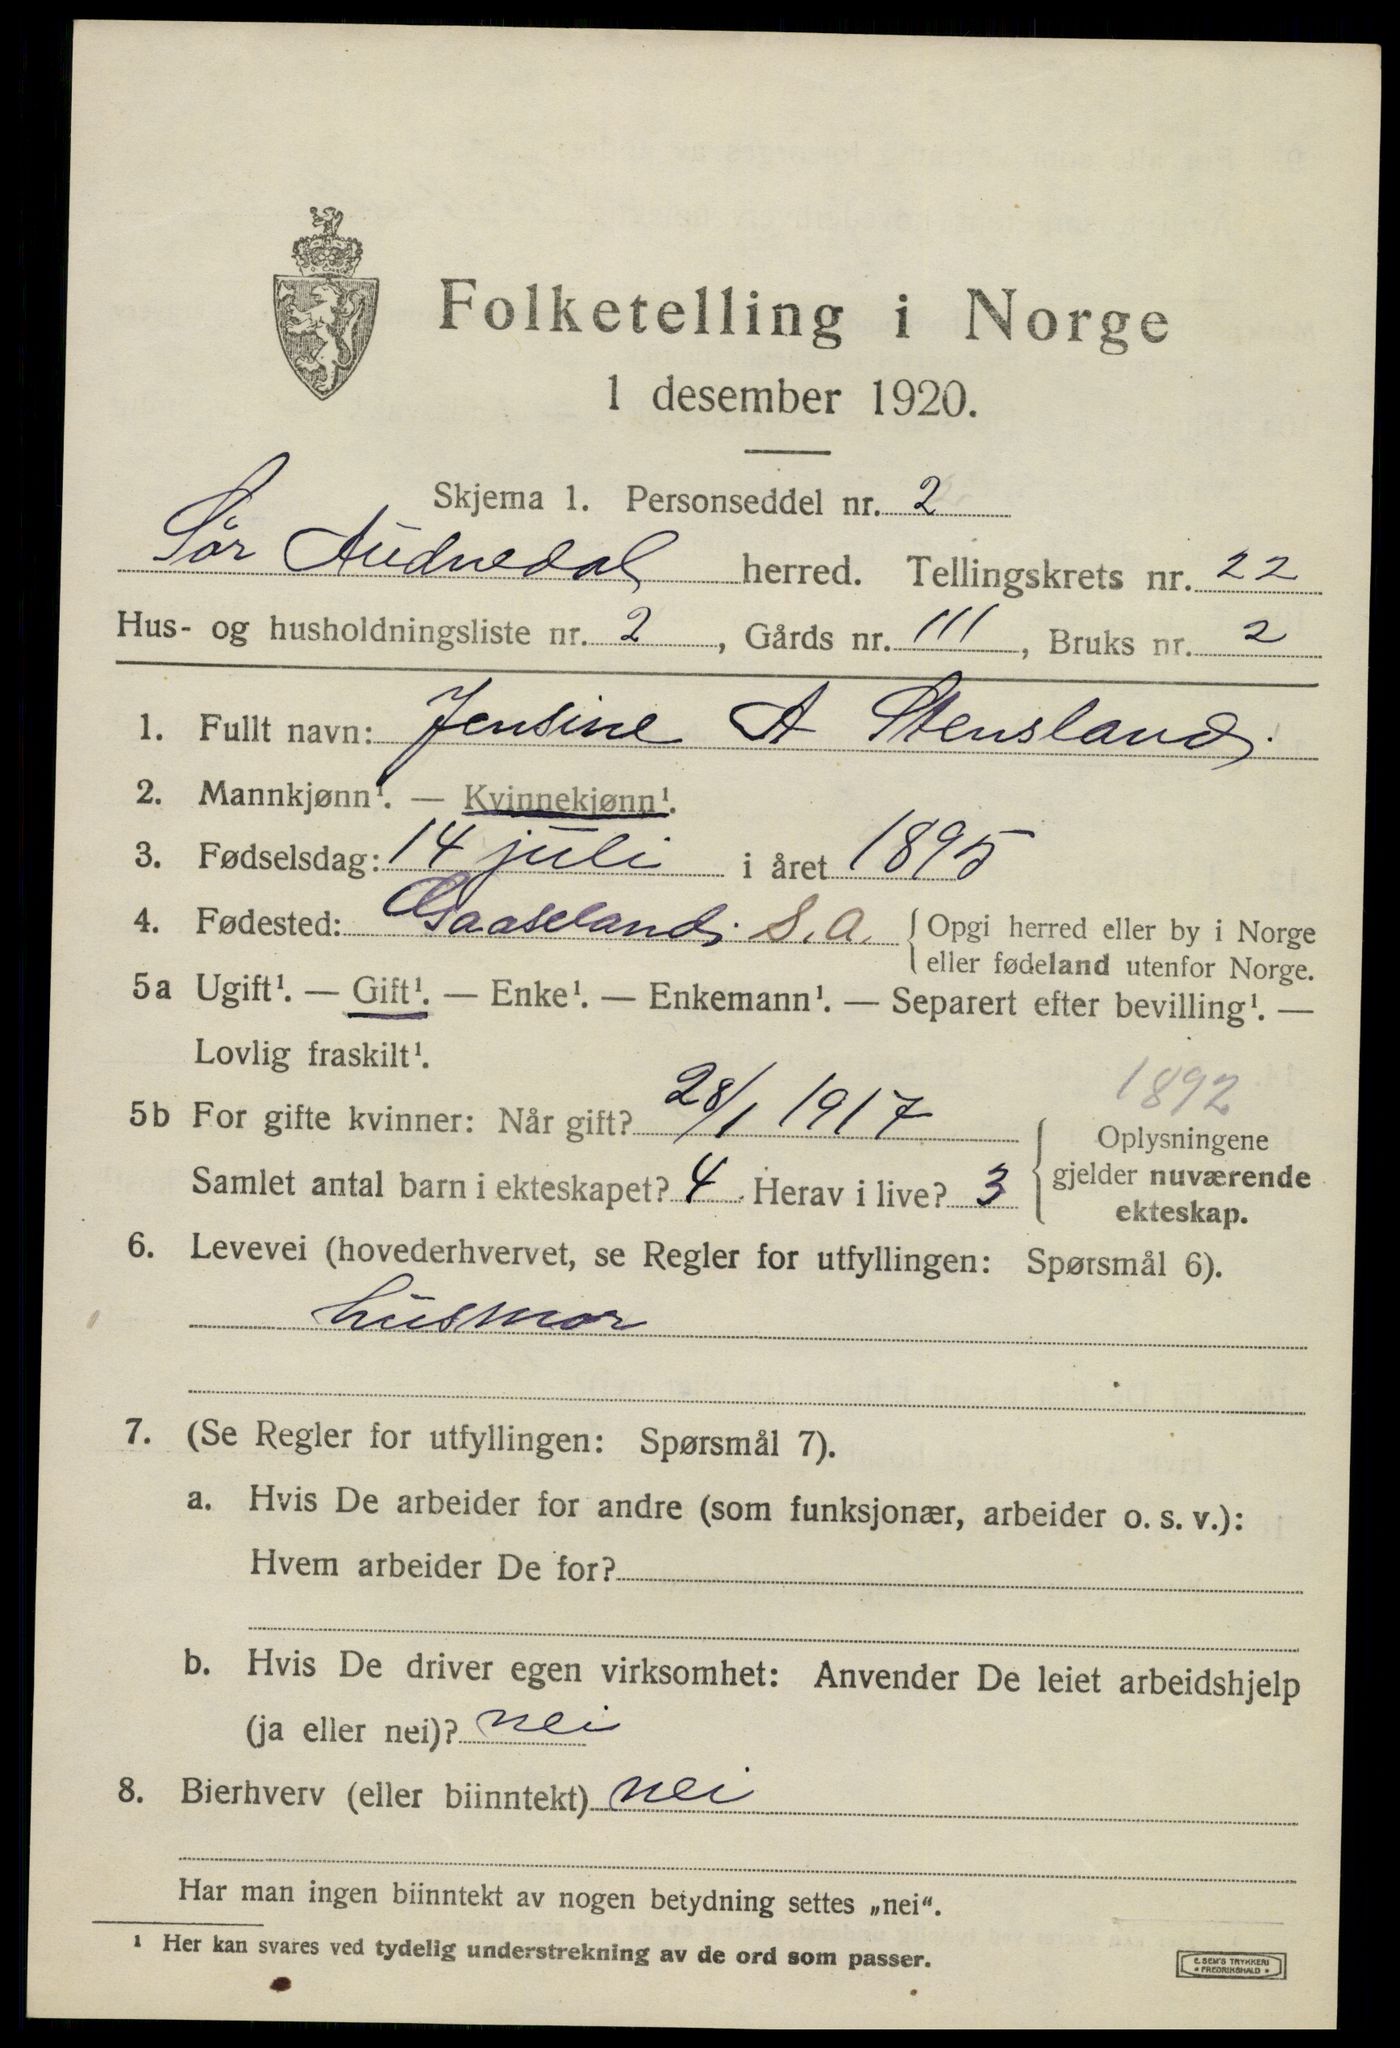 Folketelling i Norge
1 desember 1920.
Skjema 1. Personseddel nr. 2
Sør Audnedal herred. Tellingskrets nr. 22
Hus- og husholdningsliste nr. 2, Gårds nr. 111, Bruks nr. 2
1. Fullt navn: Jensine A Stensland
2. Mannkjønn¹. — Kvinnekjønn¹.
3. Fødselsdag: 14 juli i året 1895
4. Fødested: Gaaseland S. A. { Opgi herred eller by i Norge
eller fødeland utenfor Norge.
5a Ugift¹. — Gift¹. — Enke¹. — Enkemann¹. — Separert efter bevilling¹. —
Lovlig fraskilt¹.
1892
5b For gifte kvinner: Når gift? 28/1 1917
Samlet antal barn i ekteskapet? 4 Herav i live? 3
Oplysningene
gjelder nuværende
ekteskap.
6. Levevei (hovederhvervet, se Regler for utfyllingen: Spørsmål 6).
husmor
7. (Se Regler for utfyllingen: Spørsmål 7).
a. Hvis De arbeider for andre (som funksjonær, arbeider o. s. v.):
Hvem arbeider De for?
b. Hvis De driver egen virksomhet: Anvender De leiet arbeidshjelp
(ja eller nei)? nei
8. Bierhverv (eller biinntekt) nei
Har man ingen biinntekt av nogen betydning settes „nei“.
¹ Her kan svares ved tydelig understrekning av de ord som passer.
E. SEM'S TRYKKERI
• FREDRIKSHALD •